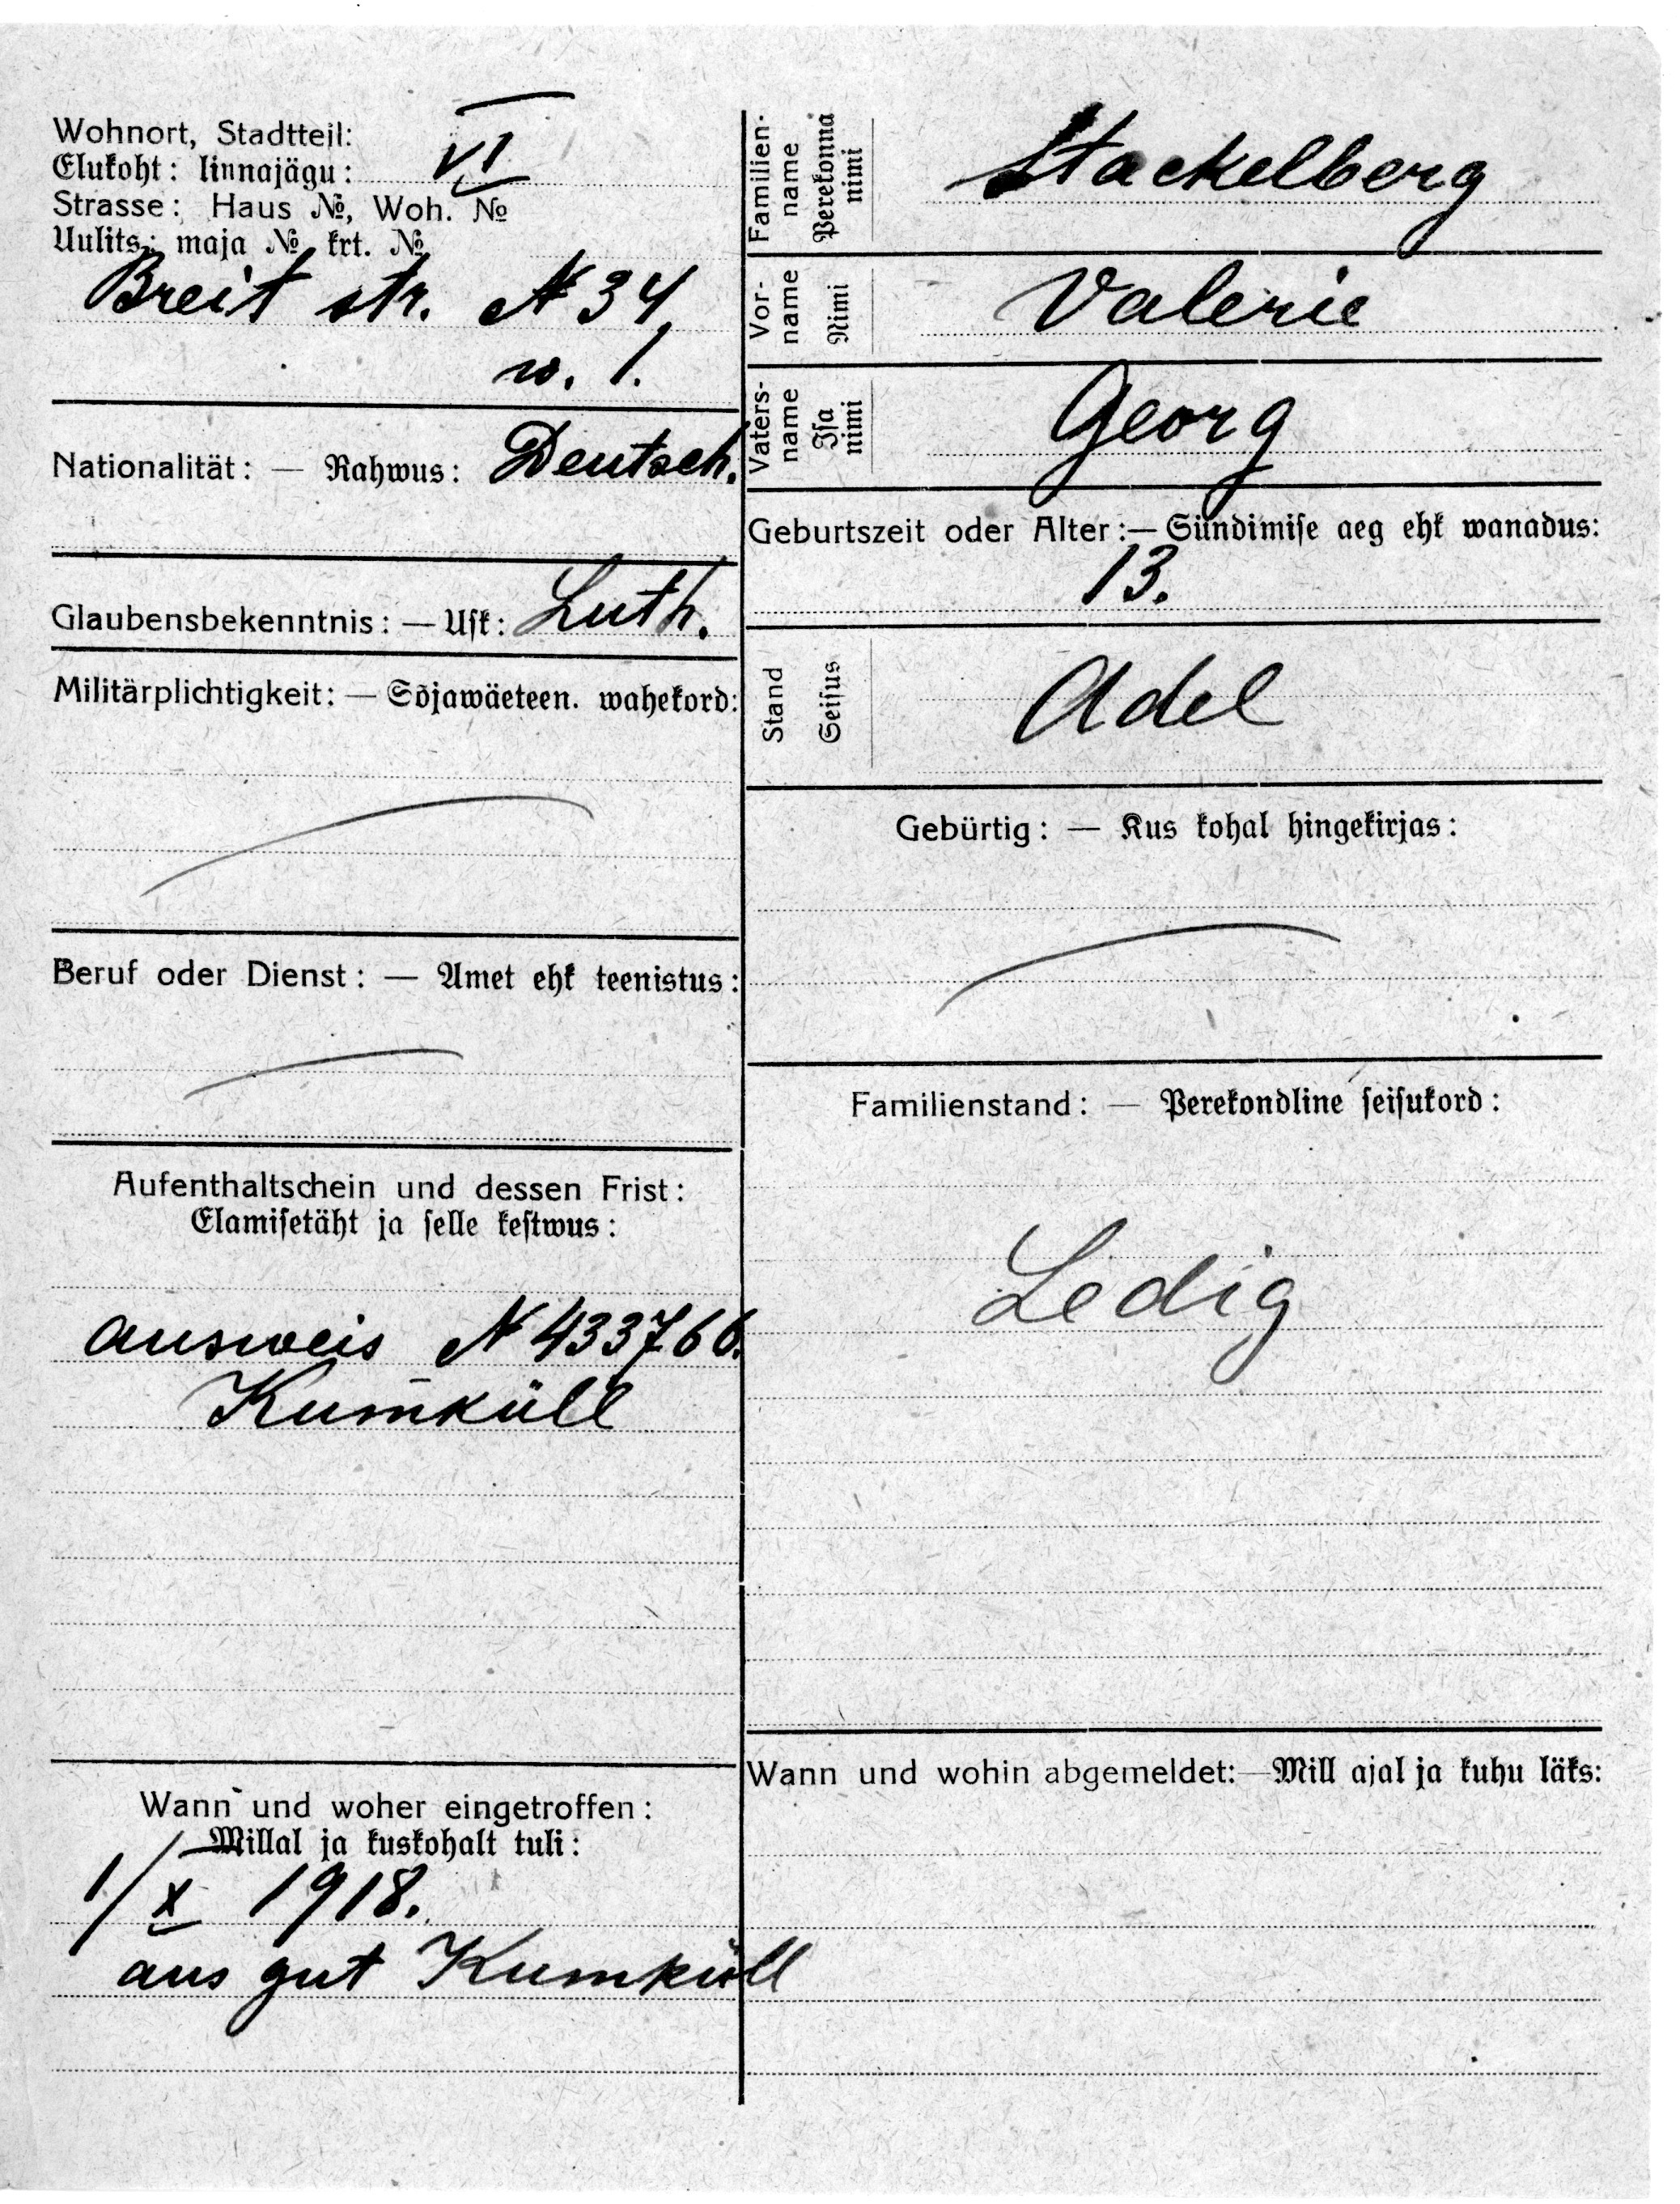 Wohnort, Stadtteil:
Elukoht: linnajägu: VI
Strasse: Haus №, Woh. №
Uulits: maja № krt. №
Breit str. № 34
w. 1.
Nationalität: — Rahwus: Deutsch.
Glaubensbekenntnis: — Usk: Luth.
Militärplichtigkeit: — Sõjawäeteen. wahekord:
Beruf oder Dienst: — Amet ehk teenistus:
Aufenthaltschein und dessen Frist:
Elamisetäht ja selle kestwus:
Ausweis № 433766.
Kumküll
Wann und woher eingetroffen:
Millal ja kuskohalt tuli:
1/X 1918.
aus gut Kumküll
Familien-
name
Perekonna
nimi
Stackelberg
Vor-
name
Nimi
Valerie
Vaters-
name
Isa
nimi
Georg
Geburtszeit oder Alter: — Sündimise aeg ehk wanadus:
13.
Stand
Seisus
Adel
Gebürtig: — Kus kohal hingekirjas:
Familienstand: — Perekondline seisukord:
Ledig
Wann und wohin abgemeldet: — Mill ajal ja kuhu läks: